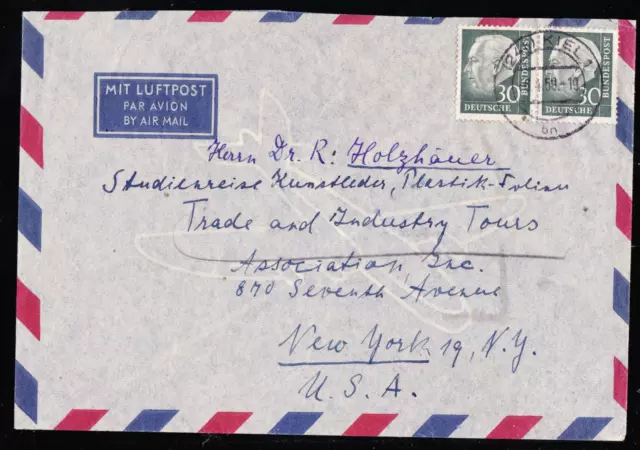 MIT LUFTPOST
PAR AVION
BY AIR MAIL
30
DEUTSCHE
BUNDESPOST
30
DEUTSCHE
BUNDESPOST
KIEL 1
Herrn Dr. R: Holzhäuer
Studienreise Kunstleder, Plastik-Folien
Trade and Industry Tours
Association, Inc.
870 Seventh Avenue
New York 19, N.Y.
U.S.A.